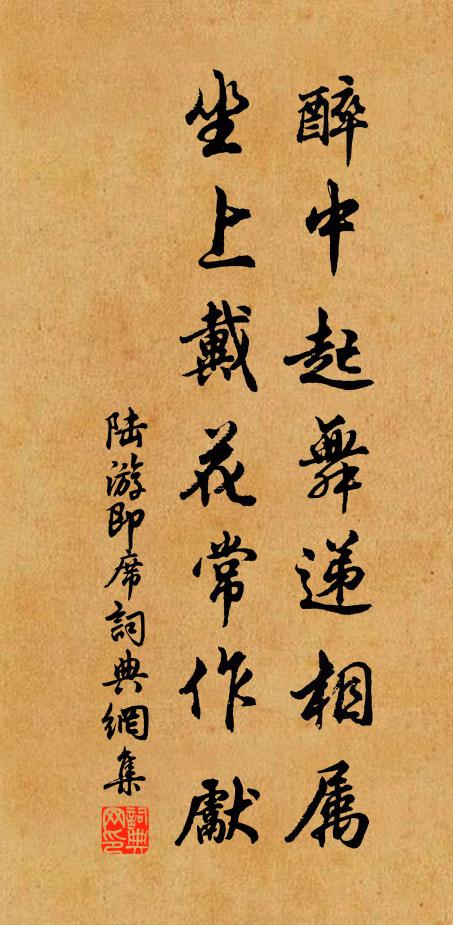 醉中起舞递相属
坐上戴花常作獻
陆游即席詞典網集
詞典网印